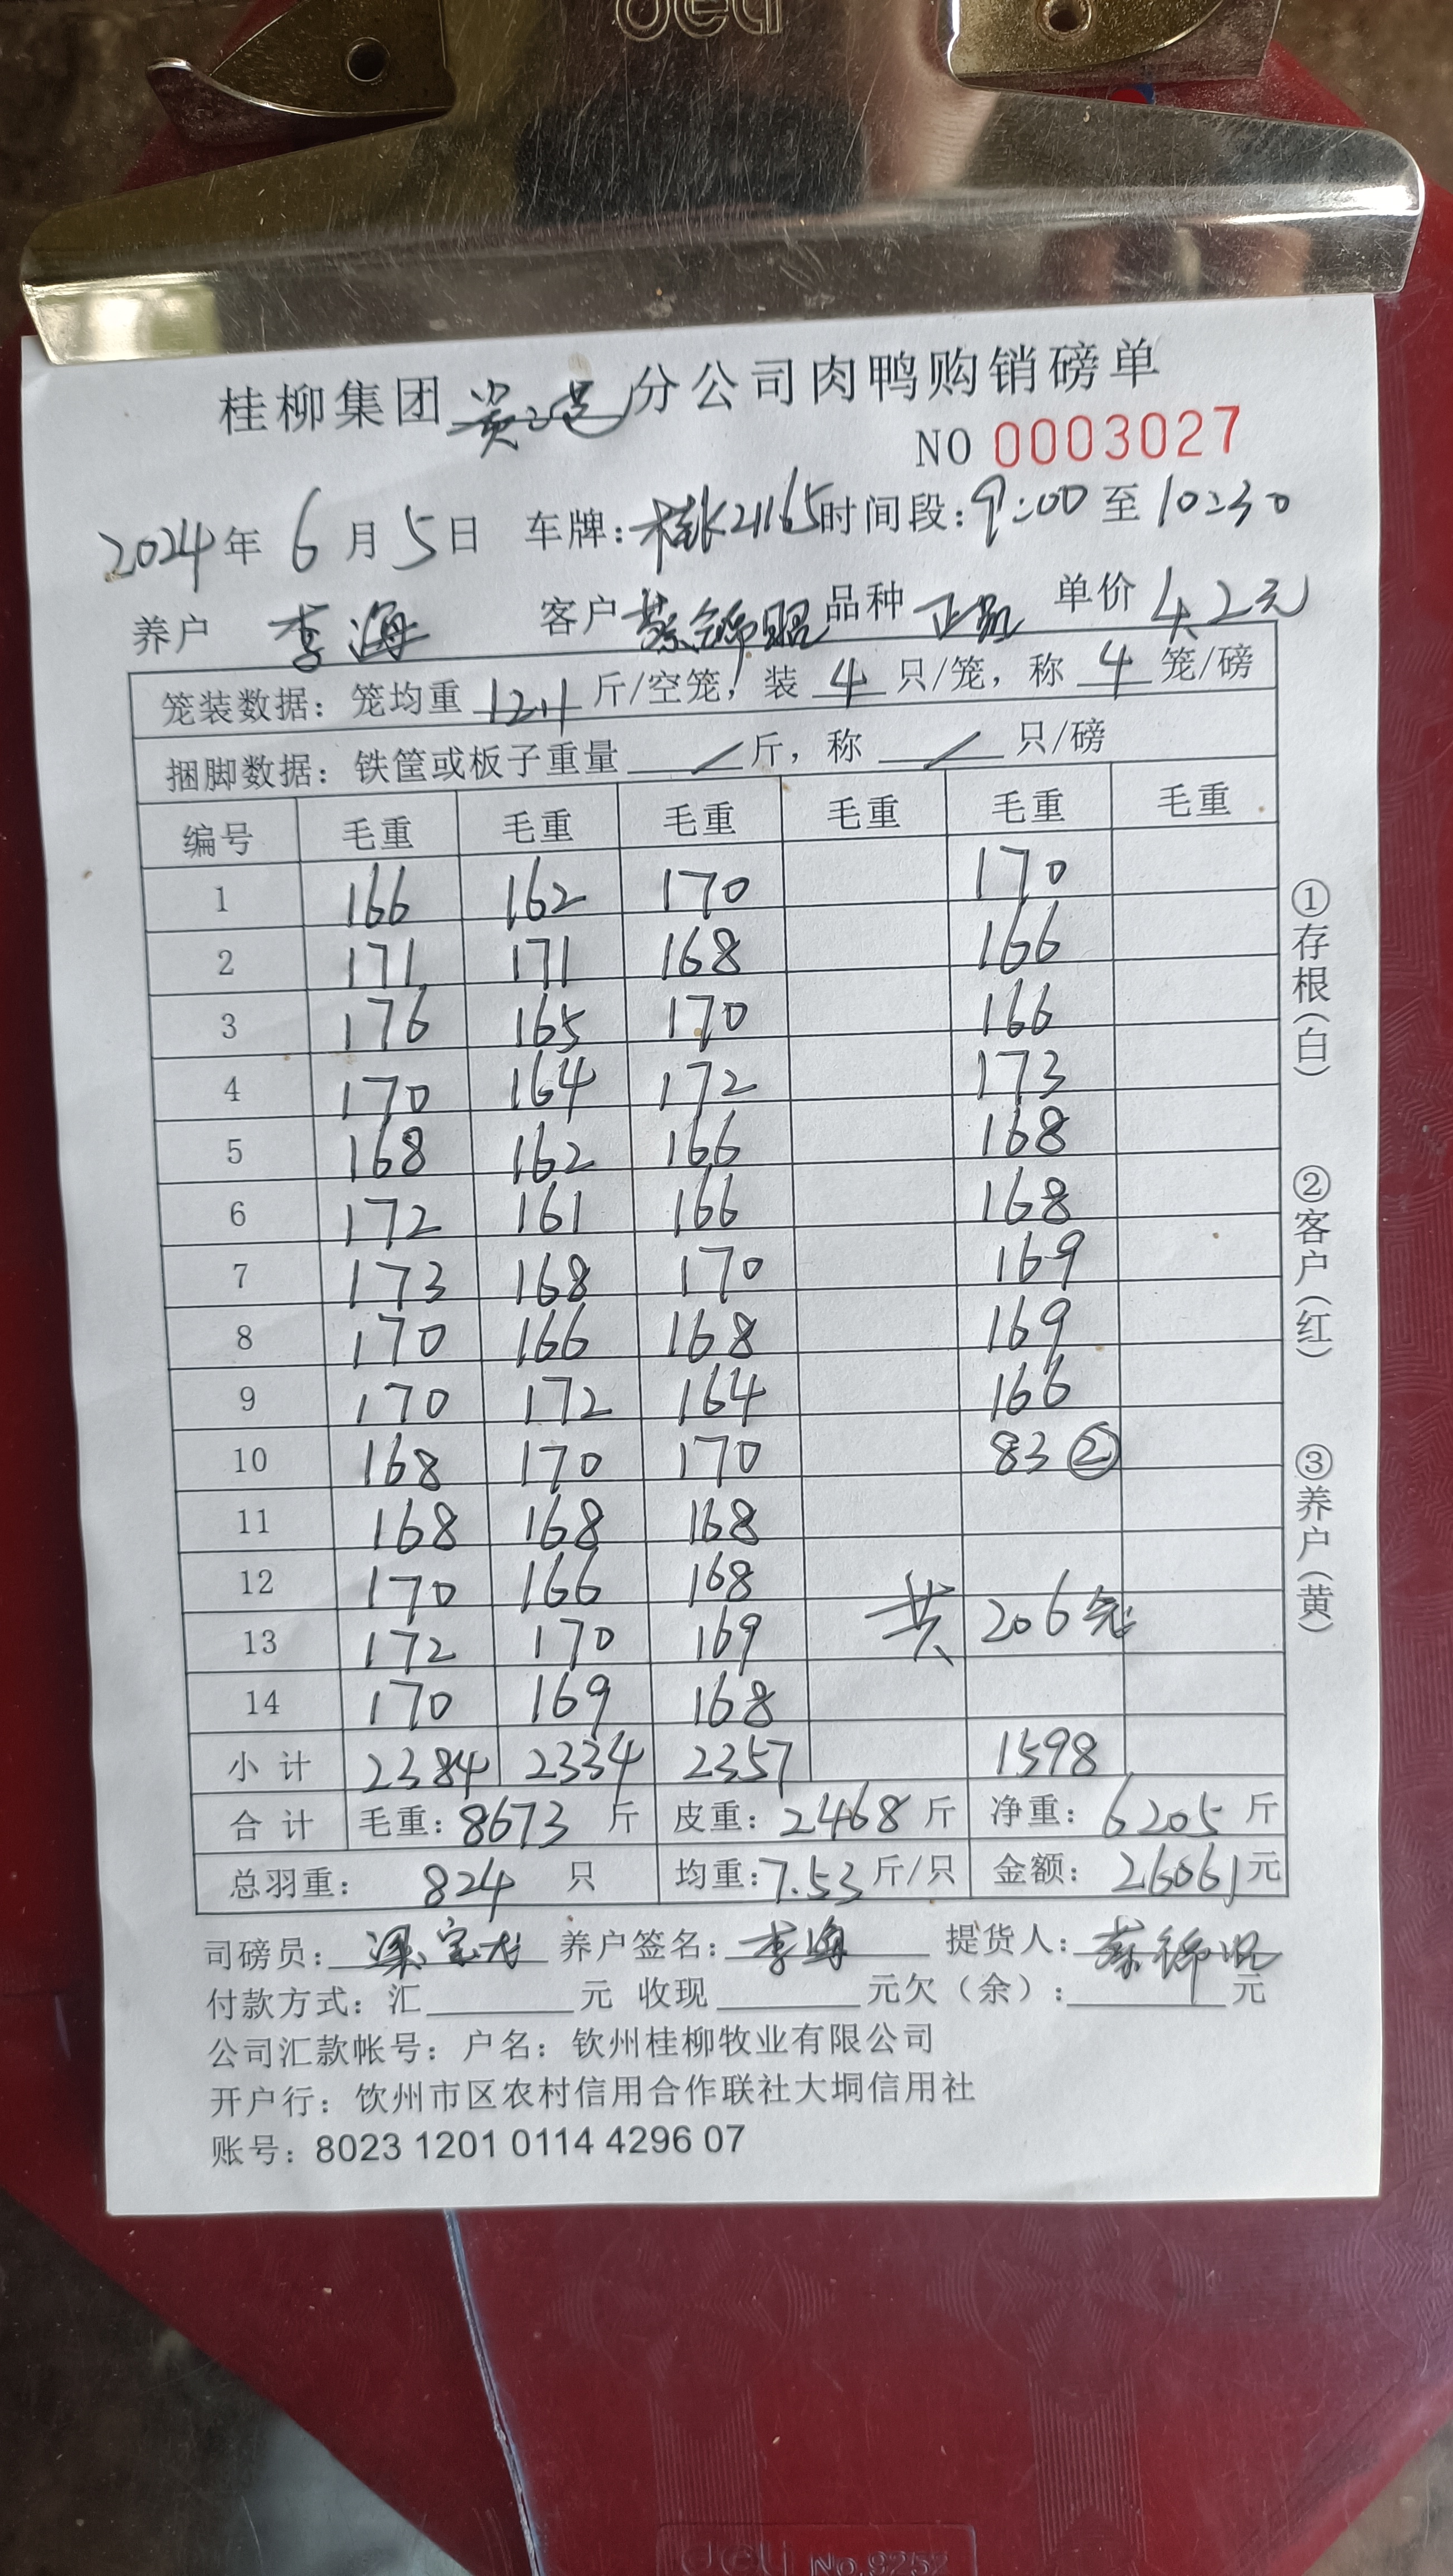 deli
桂柳集团贵港分公司肉鸭购销磅单
NO 0003027
2024年 6月 5日 车牌:桂K21165 时间段:9:00 至 10:30
养户 李海 客户 蔡锦昭 品种 正品 单价 4.2元
笼装数据: 笼均重 12.1 斤/空笼, 装 4 只/笼, 称 4 笼/磅
捆脚数据: 铁筐或板子重量 / 斤, 称 / 只/磅
编号 毛重 毛重 毛重 毛重 毛重 毛重
1 166 162 170 170
2 171 171 168 166
3 176 165 170 166
4 170 164 172 173
5 168 162 166 168
6 172 161 166 168
7 173 168 170 169
8 170 166 168 169
9 170 172 164 166
10 168 170 170 83 ②
11 168 168 168
12 170 166 168
13 172 170 169 共 206笼
14 170 169 168
小计 2384 2334 2357 1598
合计 毛重: 8673 斤 皮重: 2468 斤 净重: 6205 斤
总羽重: 824 只 均重: 7.53 斤/只 金额: 26061 元
司磅员: 梁宝 养户签名: 李海 提货人: 蔡锦昭
付款方式: 汇 元 收现 元欠(余): 元
公司汇款帐号: 户名: 钦州桂柳牧业有限公司
开户行: 饮州市区农村信用合作联社大垌信用社
账号: 8023 1201 0114 4296 07
①存根(白) ②客户(红) ③养户(黄)
deli No.9252